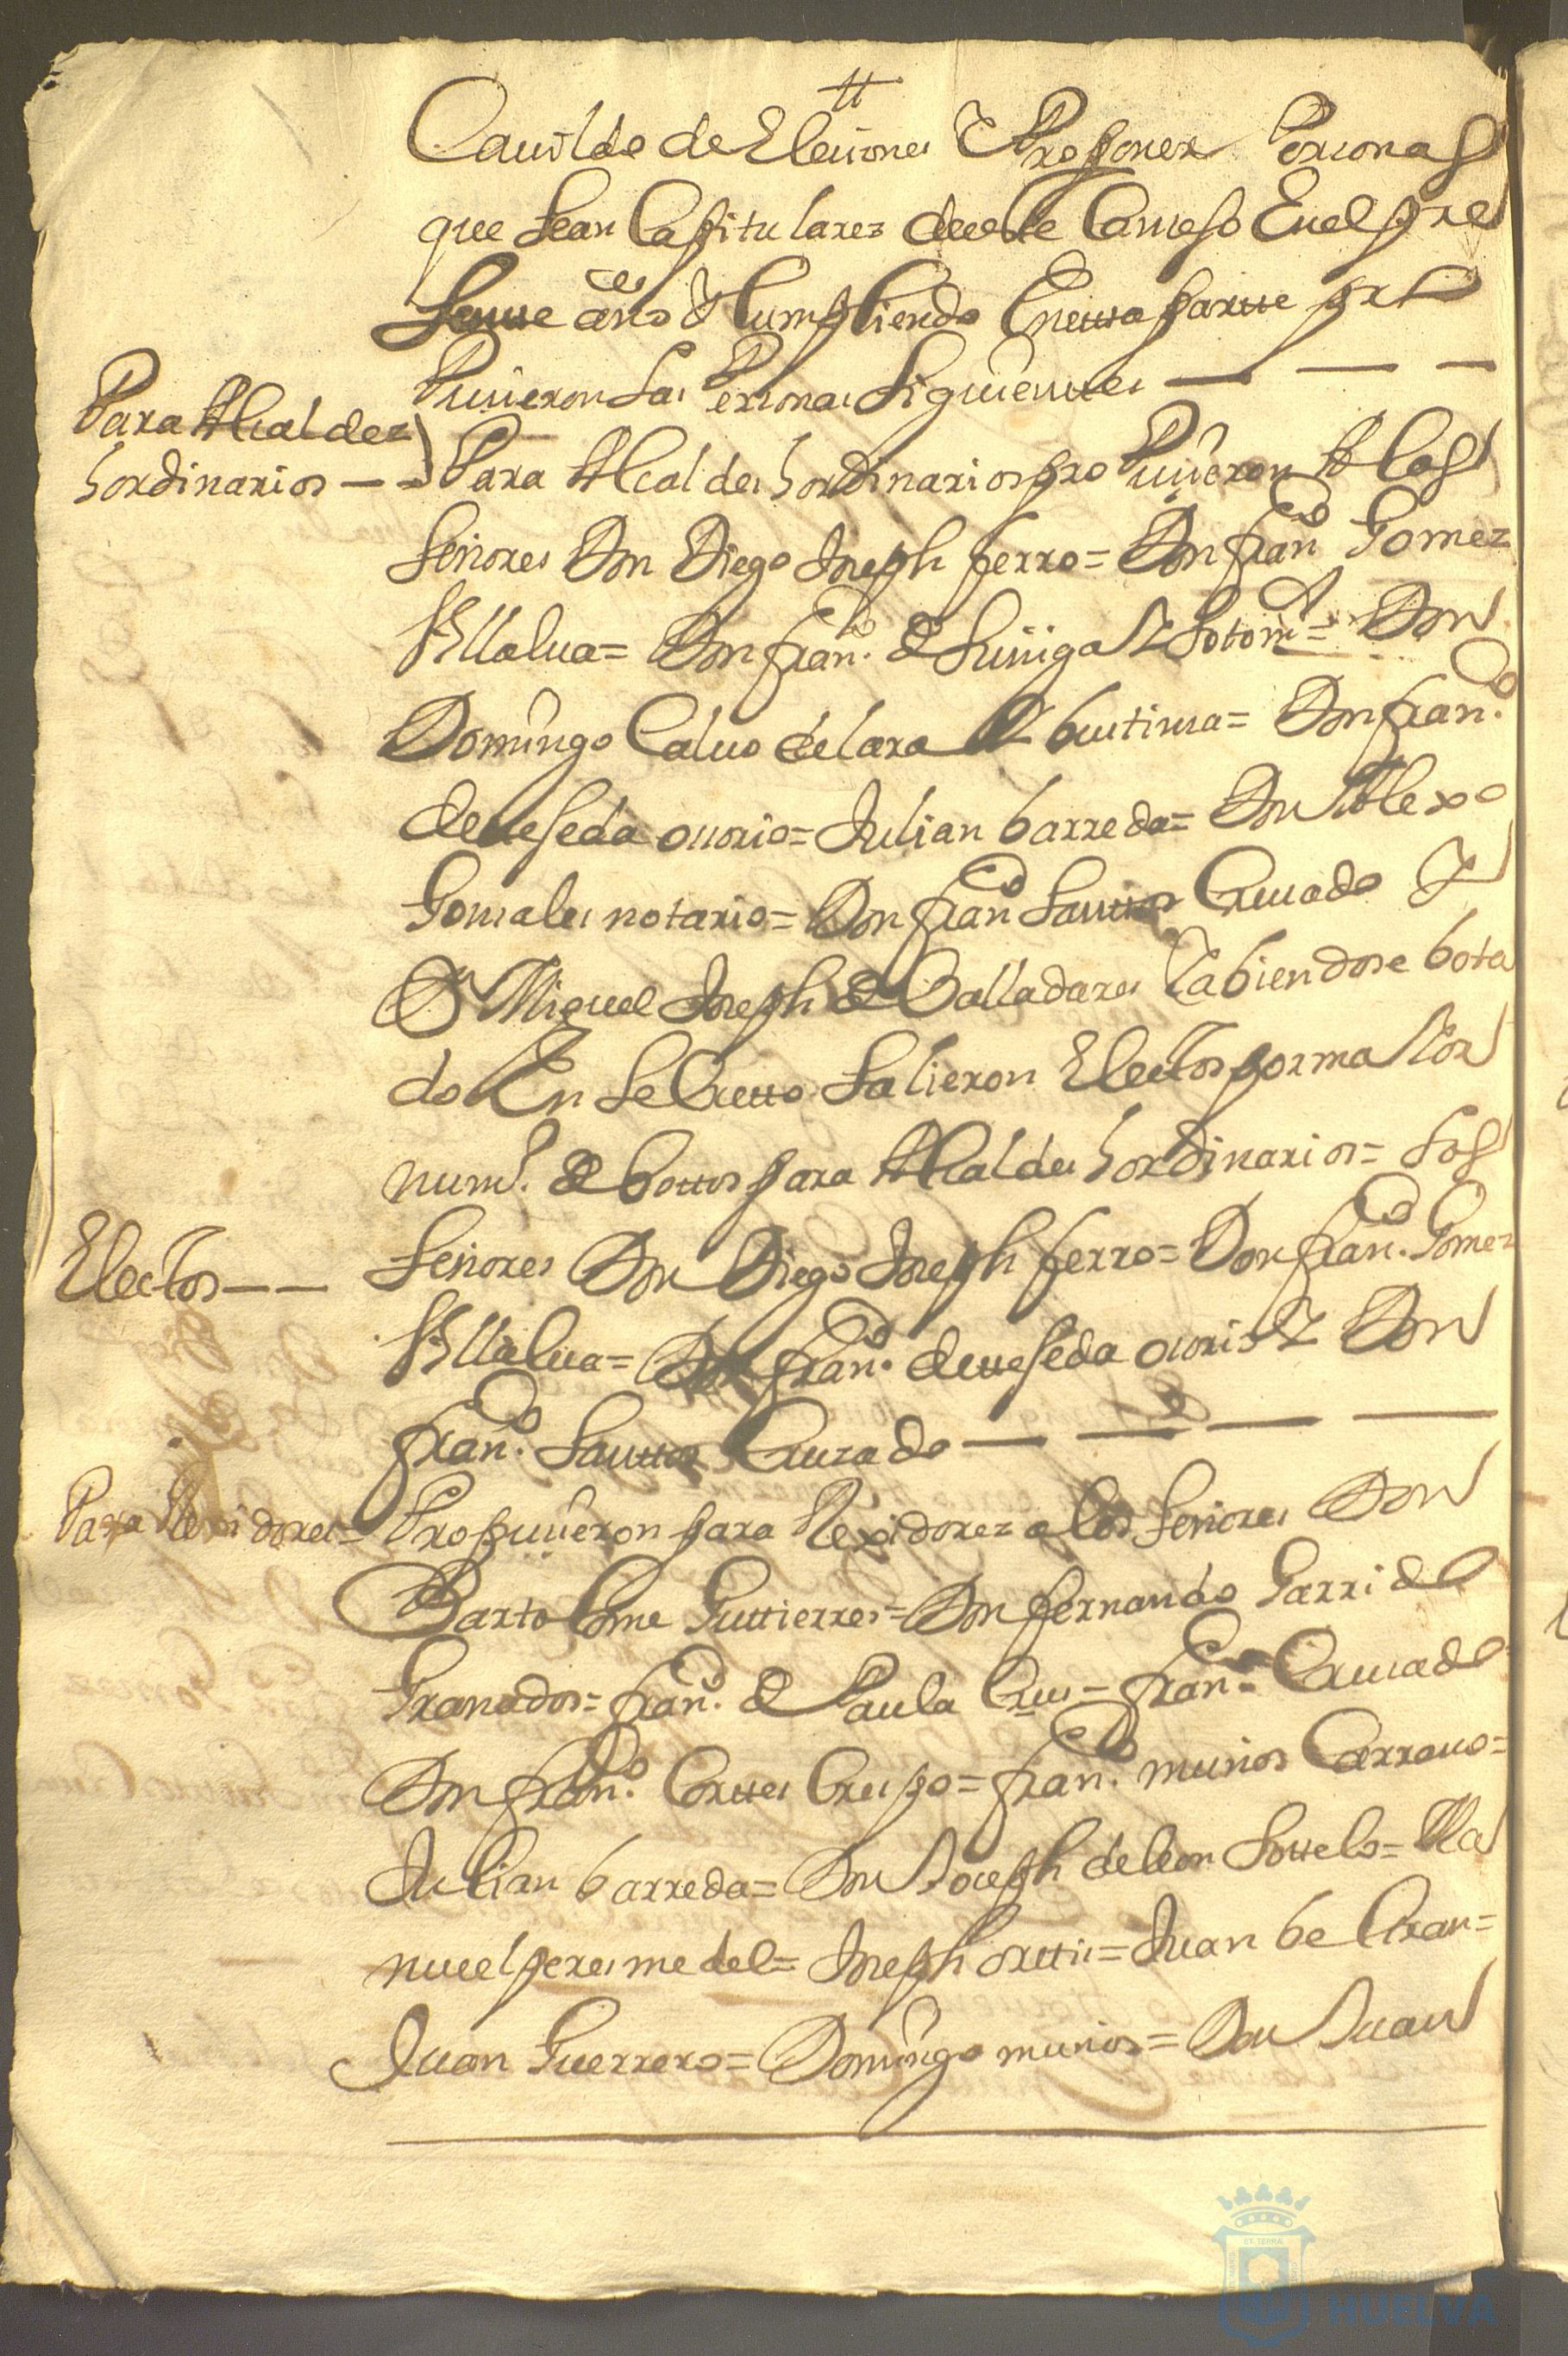 Cauildo de Elecciones Y Proponer Personas
que Sean Capitulares deeste Conçejo En el pre
Sente año Y Cumpliendo Con esta parte pro
Pusieron Las Personas Siguientes — — —
Para Alcaldes
hordinarios — =
Para Alcaldes hordinarios pro Pusieron A los
Señores Don Diego Joseph ferro = Don franco Gomez
Villalua = Don franco. de Suñiga Y Sotomor = Don
Domingo Caluo de lara Y buitima = Don franco.
de ueseda osorio = Julian barreda = Don Alexo
Gonsales notario = Don franco Santtos Crusado Y
Dn Miguel Joseph de Balladares Y abiendose bota
do En Secretto Salieron Electos por maior
numo. de bottos para Alcaldes hordinarios = Los
Electos — —
Señores Don Diego Joseph ferro = Don franco. Gomez
Villalua = Don franco. de ueseda osorio Y Don
franco. Santtos Cruzado — — — —
Para Rexidores =
Propusieron para Rexidorez a los Señores Don
Bartolome Guttierres = Don fernando Garrido
Granados = franco. de Paula Crus = franco = Crusado
Don franco. Corttes Crespo = franco. muños Carrasco =
Julian barreda = Don Joseph de leon Sottelo = Ma
nuel peres medel = Joseph orttis = Juan beltran =
Juan Guerrero = Domingo muños = Don Juan
Ayuntamiento
HUELVA